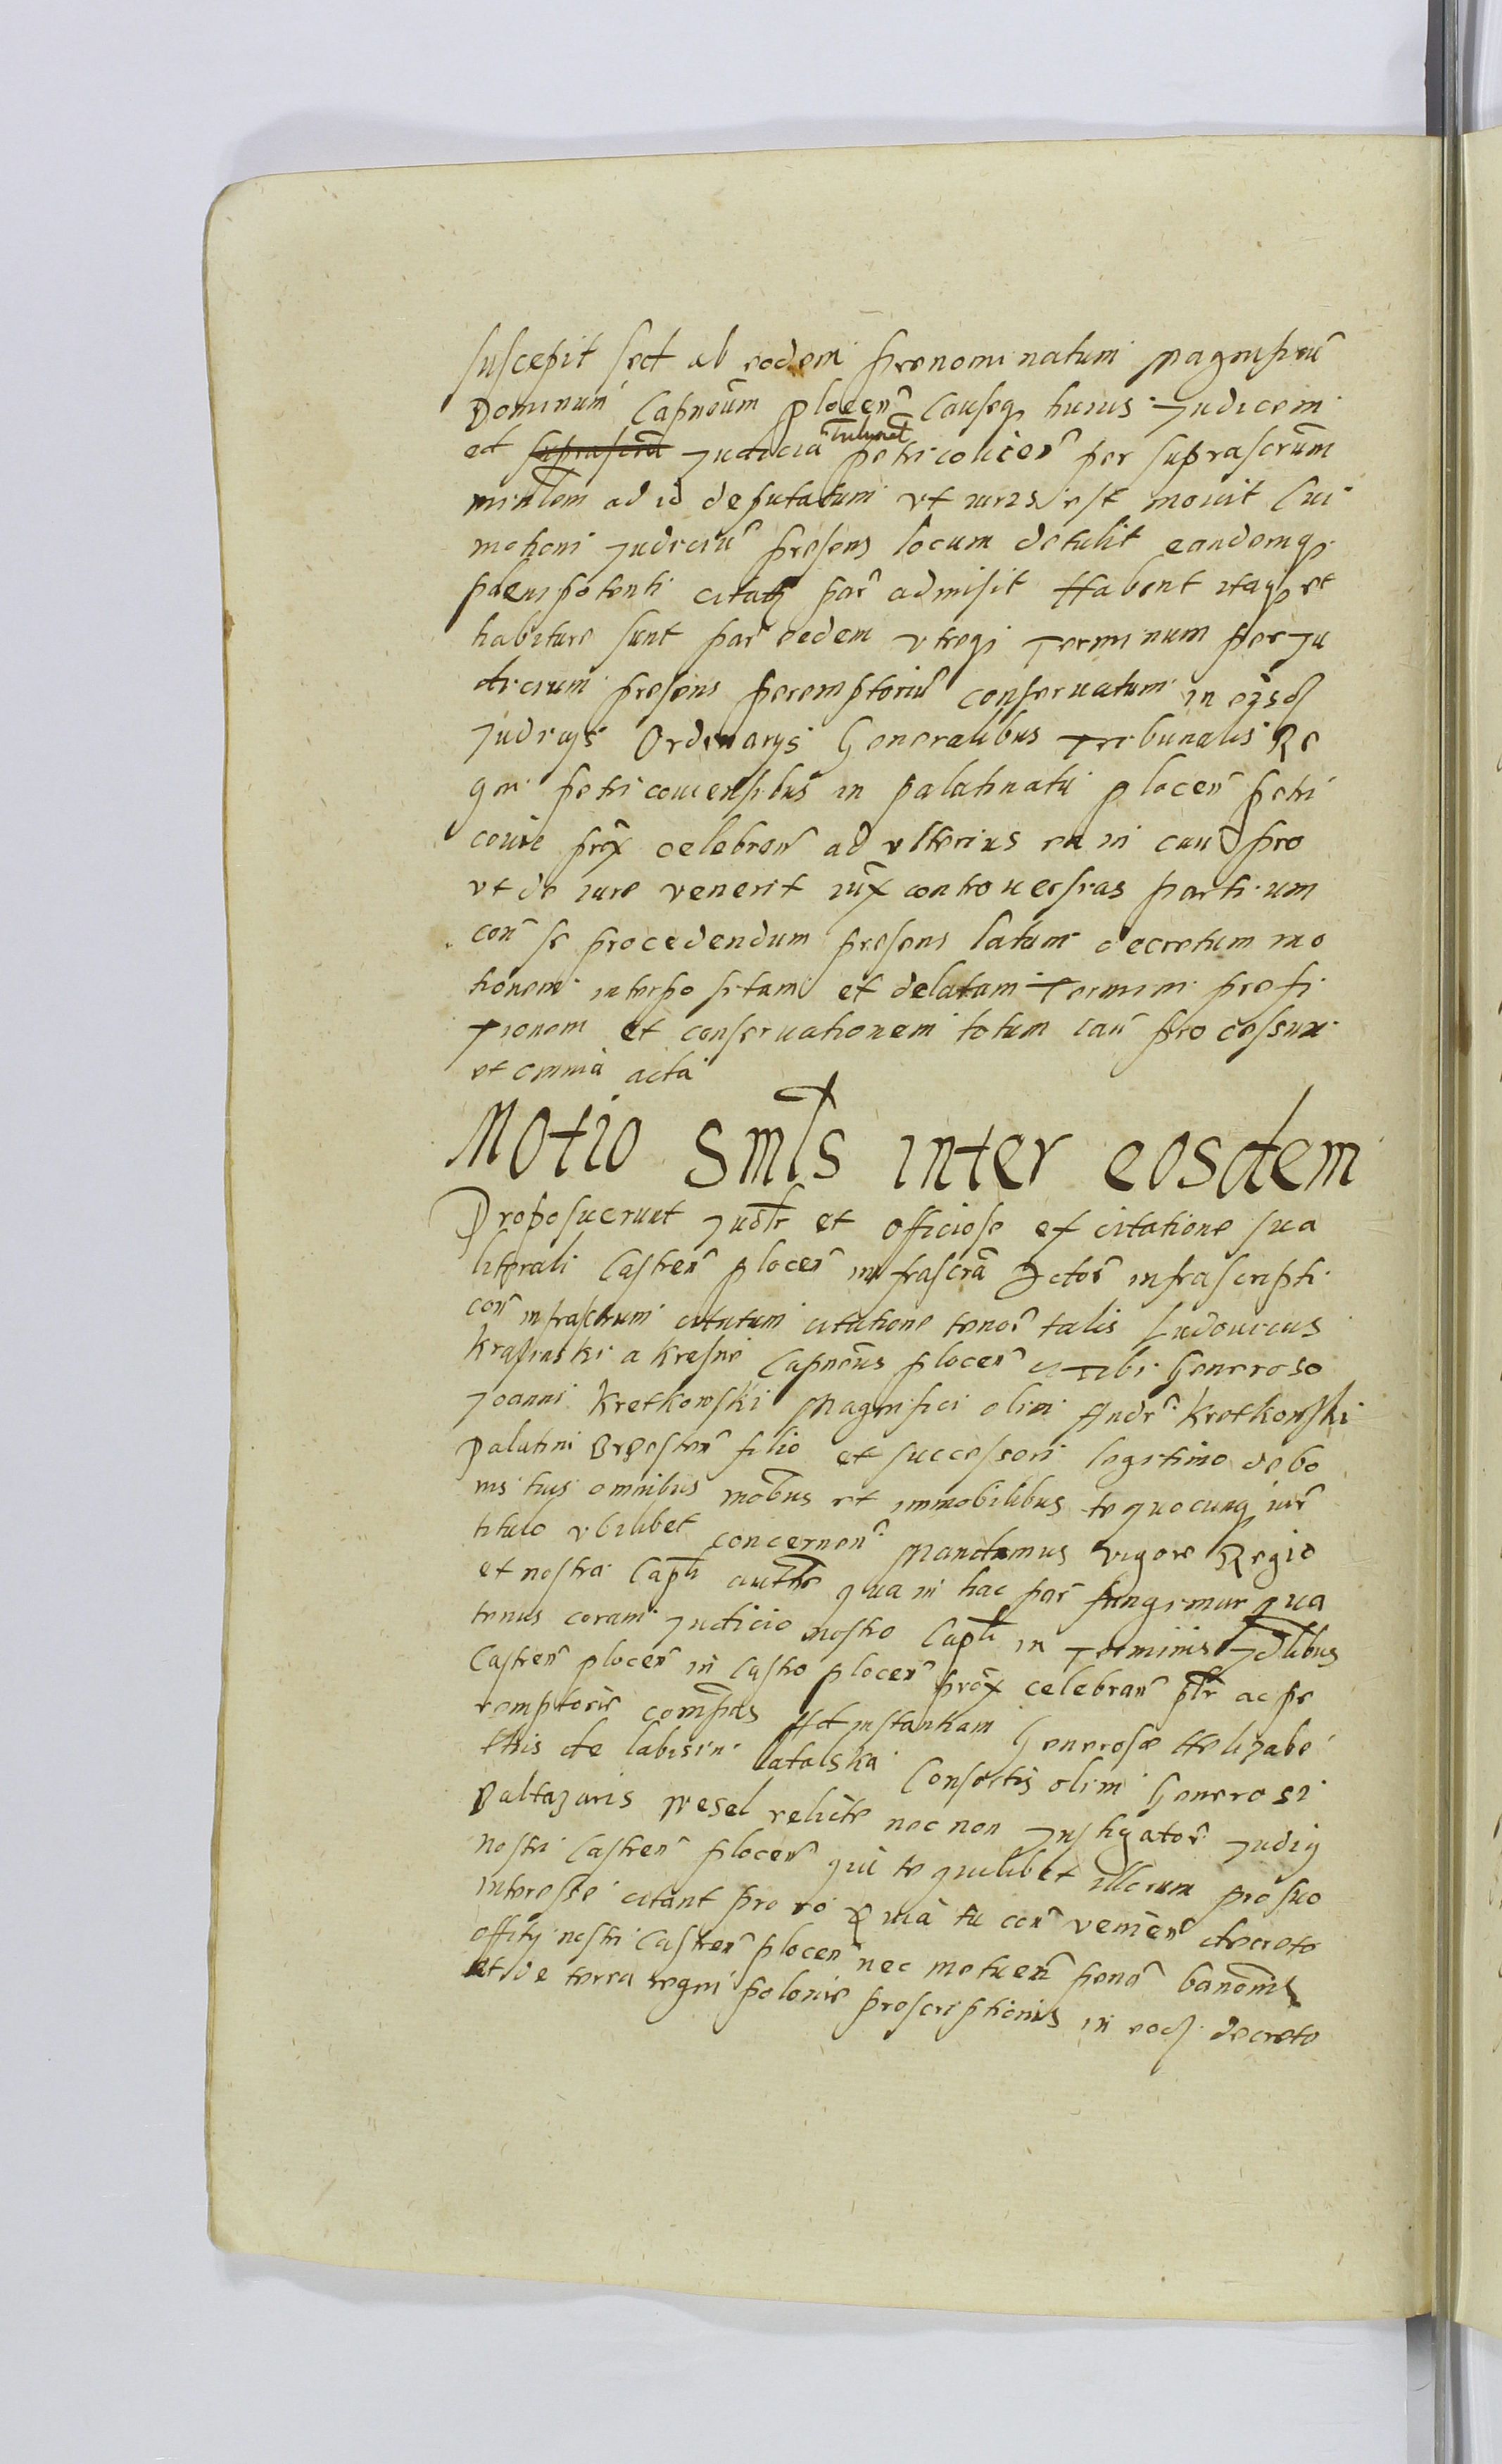 suscepit sed ab eodem prenominatum Magnificū
Dominum Capneūm plocen̄ Causeq huius Judicem
et suprascrā Judicia Tribunal̄ petricouicen̄ per suprascrūm
minrlem ad id deputatum vt iuris est mouit Cui
motioni Judiciū presens locum detulit eandemq
paenipotenti citatę par̄ admisit Habent itaq et
habiture sunt par̄ eedem vtreqi Terminum per Ju
dicium presens peremptoriū conseruatum in eisd
Judicijs Ordinarijs Generalibus Tribunalis Re
gni petricouiensibus in palatinatu plocen̄ petri
couie prox celebran̄ ad vlterius ea in cau pro
vt de iure venerit iux controuersias partium
con̄ se procedendum presens latum decretum mo
tionem interpositam et delatam Termini prefi
xionem et conseruationem totum cau processum
et omnia acta
Motio Smls inter eosdem
Proposuerunt Judlr et officiose ex citatione sua
literali Castren̄ plocen̄ infrascrā Actor̄ infrascripti
con̄ infrascrum citatum citatione tenor̄ talis Ludouicus
Krasinski a Krasne Capneus plocen̄ Tibi Generoso
Joanni Kretkowski Magnifici olim Andr̄ Kretkowski
Palatini Brzesten̄ filio et successori legitimo de bo
nis tuis omnibus mobus et immobilibus te quocunq iur̄
titulo vbilibet concernen̄ Mandamus vigore Regio
et nostra Capli autte qua in hac par̄ fungimur qua
tenus coram Judicio nostro Capli in Terminis Jdlibus
Castren̄ plocen̄ in Castro plocen̄ prox celebran̄ plr ac pe
remptorie compas Ad instantiam Generosæ Helizabe
this de labisin Latalska Consortis olim Generosi
Baltazaris Wesel relicte nec non Instigator̄ Judiy
nostri Castren̄ plocen̄ qui te quilibet illorum pro suo
interesse citant pro eo Quia tu con̄ venien̄ decreto
offitij nostri Castren̄ plocen̄ nec metuen̄ penā banonis
et de terra regni polonie proscriptionis in eod decreto